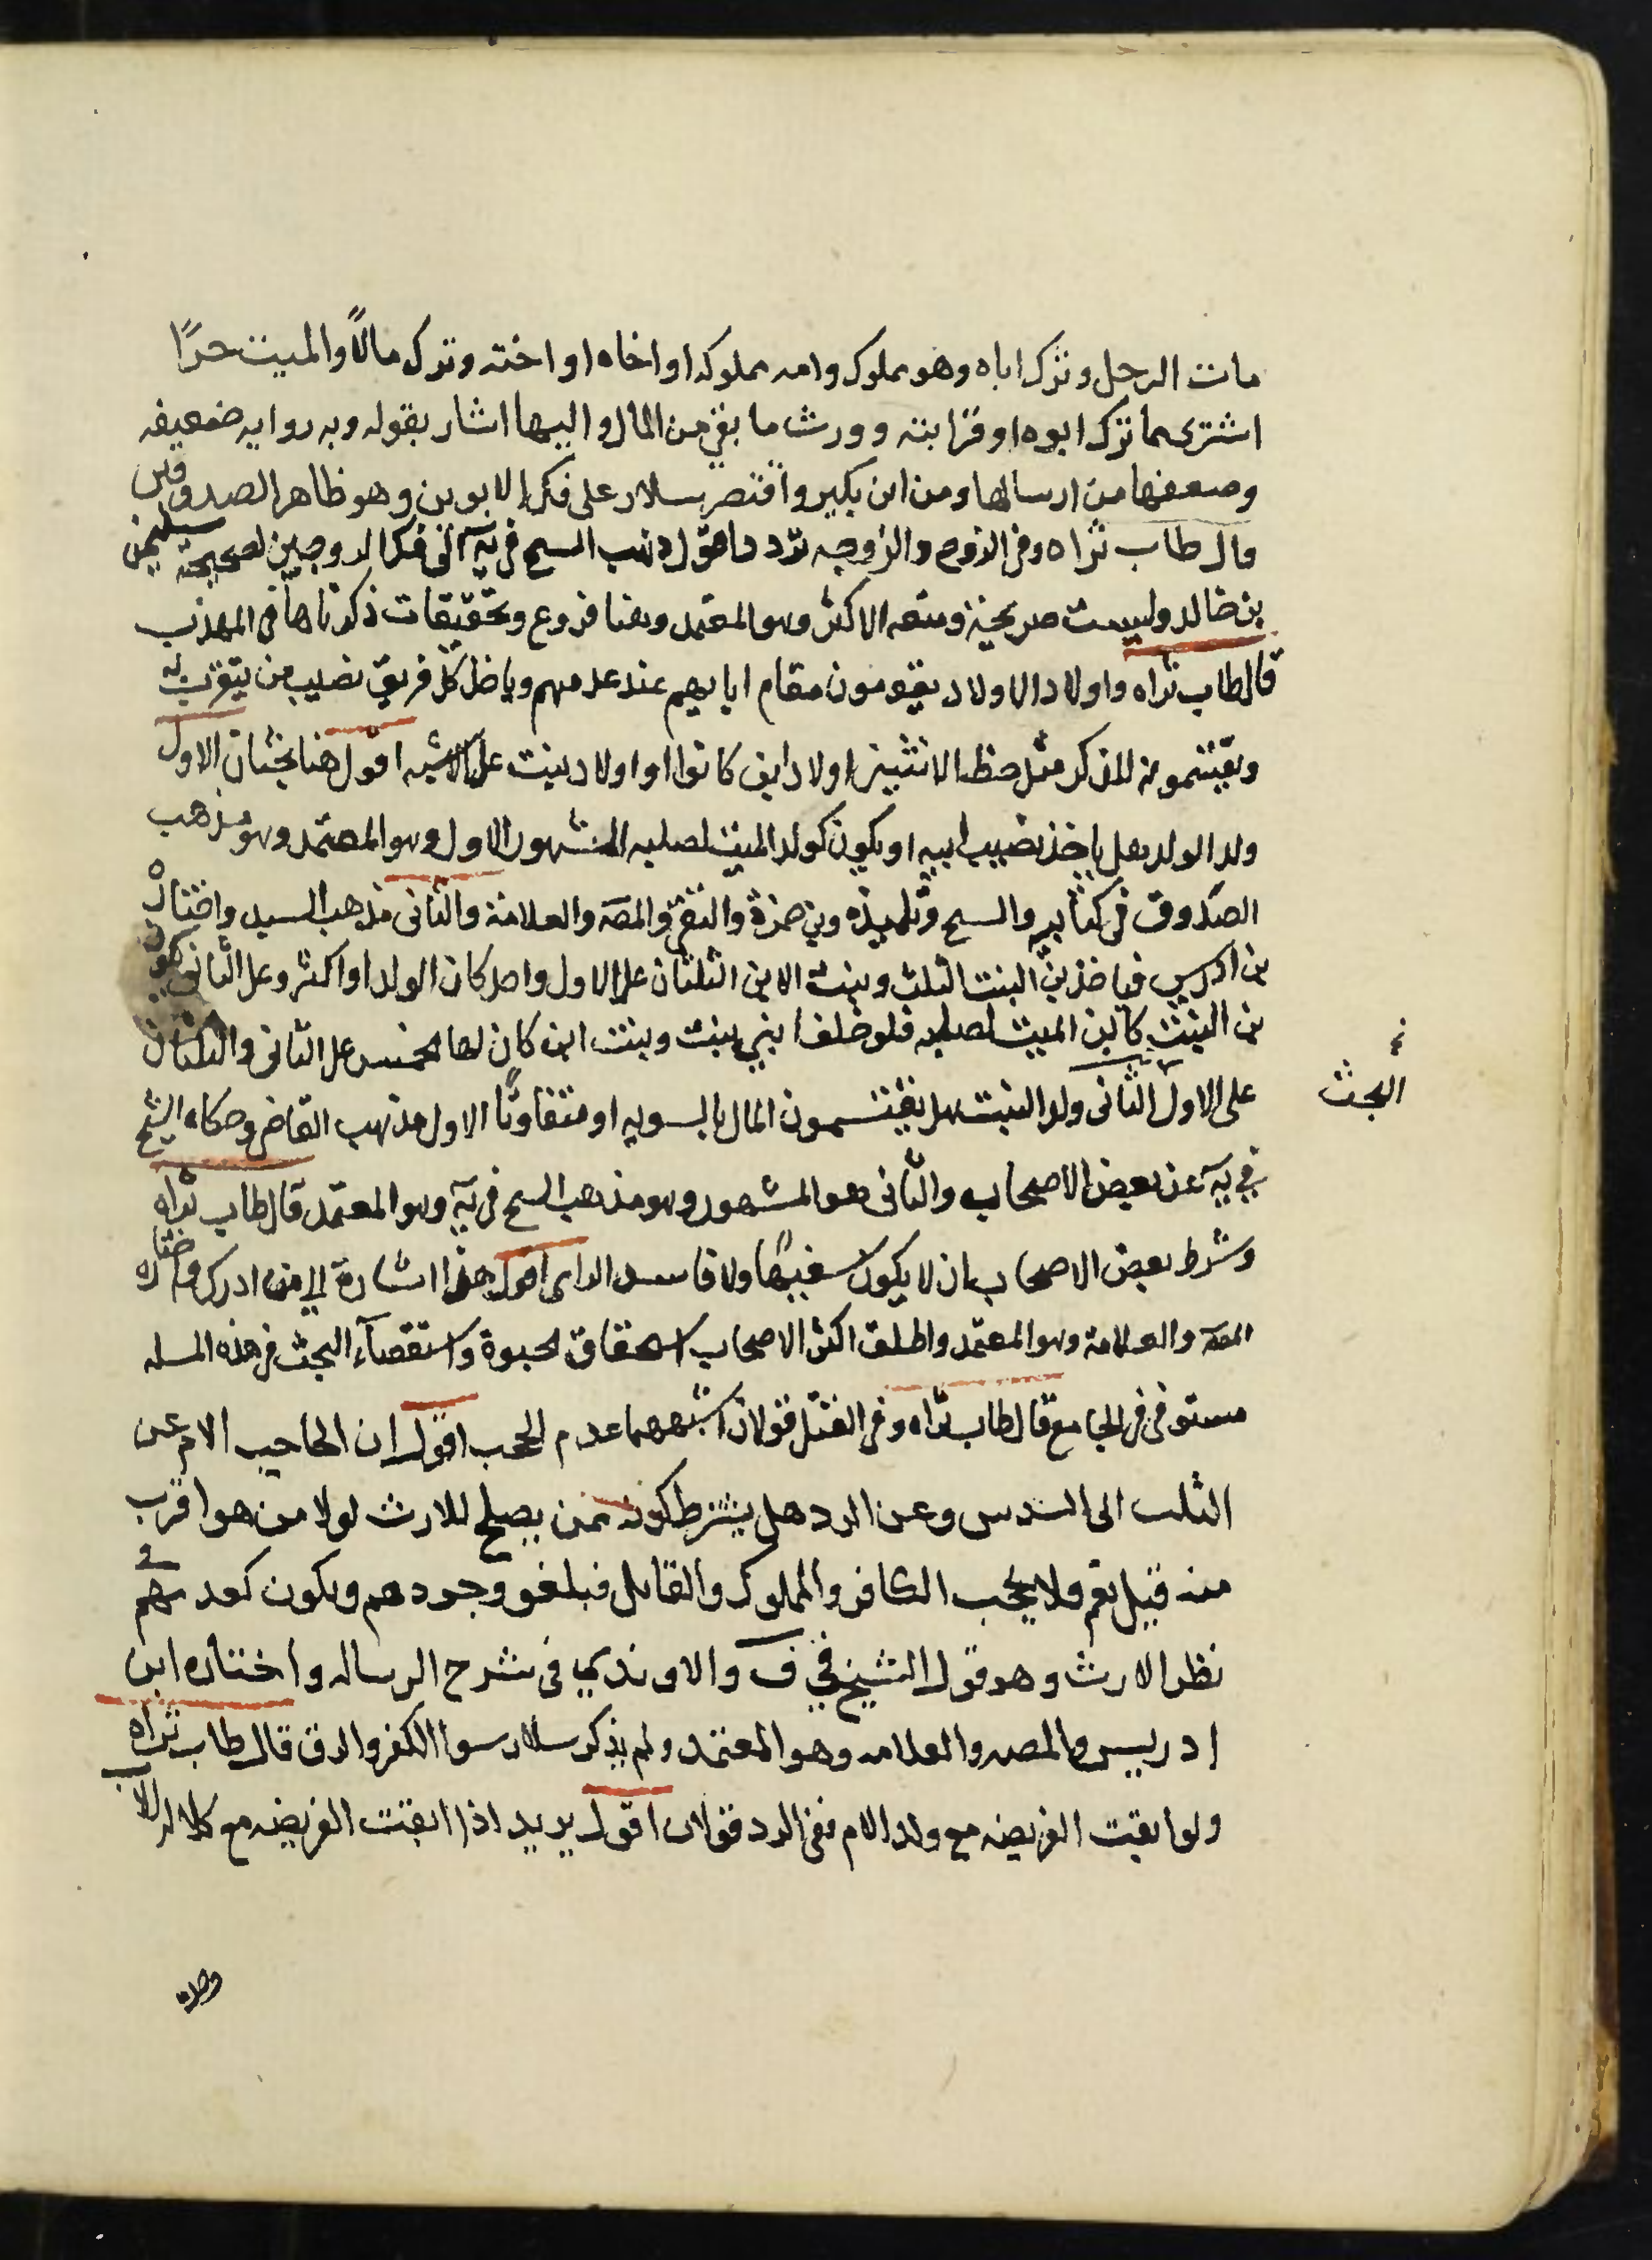 مات الرجل وترك اباه وهو مملوك وامه مملوكه او اخاه او اخته وترك مالاً والميت حرًا
اشترى مما ترك ابوه او قرابته وورث ما بقي من المال واليها اشار بقوله وبه روايه ضعيفه
وضعفها من ارسالها ومن ابن بكير واقتصر سلار على فك الابوين وهو ظاهر الصدوقين
قال طاب ثراه وفي الزوج والزوجه تردد اقول ذهب الشيخ في يه الى فك الزوجين لصحيحة سليمن
بن خالد وليست صريحة ومنعه الاكثر وهو المعتمد وهنا فروع وتحقيقات ذكرناها في المهذب
قال طاب ثراه واولاد الاولاد يقومون مقام ابايهم عند عدمهم وياخذ كل فريق نصيب من يتقرب به
ويقتسمونه للذكر مثل حظ الانثيين اولاد ابن كانوا او اولاد بنت على الاشبه اقول هنا بحثان الاول
ولد الولد هل ياخذ نصيب ابيه او يكون كولد الميت لصلبه المشهور الاول وهو المعتمد وهو مذهب
الصدوق في كتابيه والشيخ وتلميذه وبن حمزة والتقي والمصَ والعلامة والثاني مذهب السيد واختاره
بن ادريس فياخذ بن البنت الثلث وبنت الابن الثلثان على الاول واحد كان الولد او اكثر وعلى الثاني يكون
بن البنت كابن الميت لصلبه فلو خلف ابني بنت وبنت ابن كان لها الخمس على الثاني والثلثان
على الاول الثاني ولد البنت هل يقتسمون المال بالسويه او متفاوتًا الاول مذهب القاضي وحكاه الشيخ
في يه عن بعض الاصحاب والثاني هو المشهور وهو مذهب الشيخ في يه وهو المعتمد قال طاب ثراه
وشرط بعض الاصحاب ان لا يكون سفيهًا ولا فاسد الراى اقول هذا اشارة الى بن ادريس واختاره
المصَ والعلامة وهو المعتمد واطلق اكثر الاصحاب استحقاق الحبوة واستقصآء البحث في هذه المسله
مستوفى في الجامع قال طاب ثراه وفي القتل قولان اشبههما عدم الحجب اقول ان الحاجب الام عن
الثلث الى السدس وعن الرد هل يشترط كونه ممن يصلح للارث لولا من هو اقرب
منه قيل نعم فلا يحجب الكافر والمملوك والقاتل فيلغو وجودهم ويكون كعدمهم في
نظر الارث وهو قول الشيخ في ف والاوندي في شرح الرساله واختاره ابن
ادريس والمصه والعلامه وهو المعتمد ولم يذكر سلار سوا الكفر والرق قال طاب ثراه
ولو ابقت الفريضه مع ولد الام ففي الرد قولان اقول يريد اذا ابقت الفريضه مع كلاله الاب
البحث